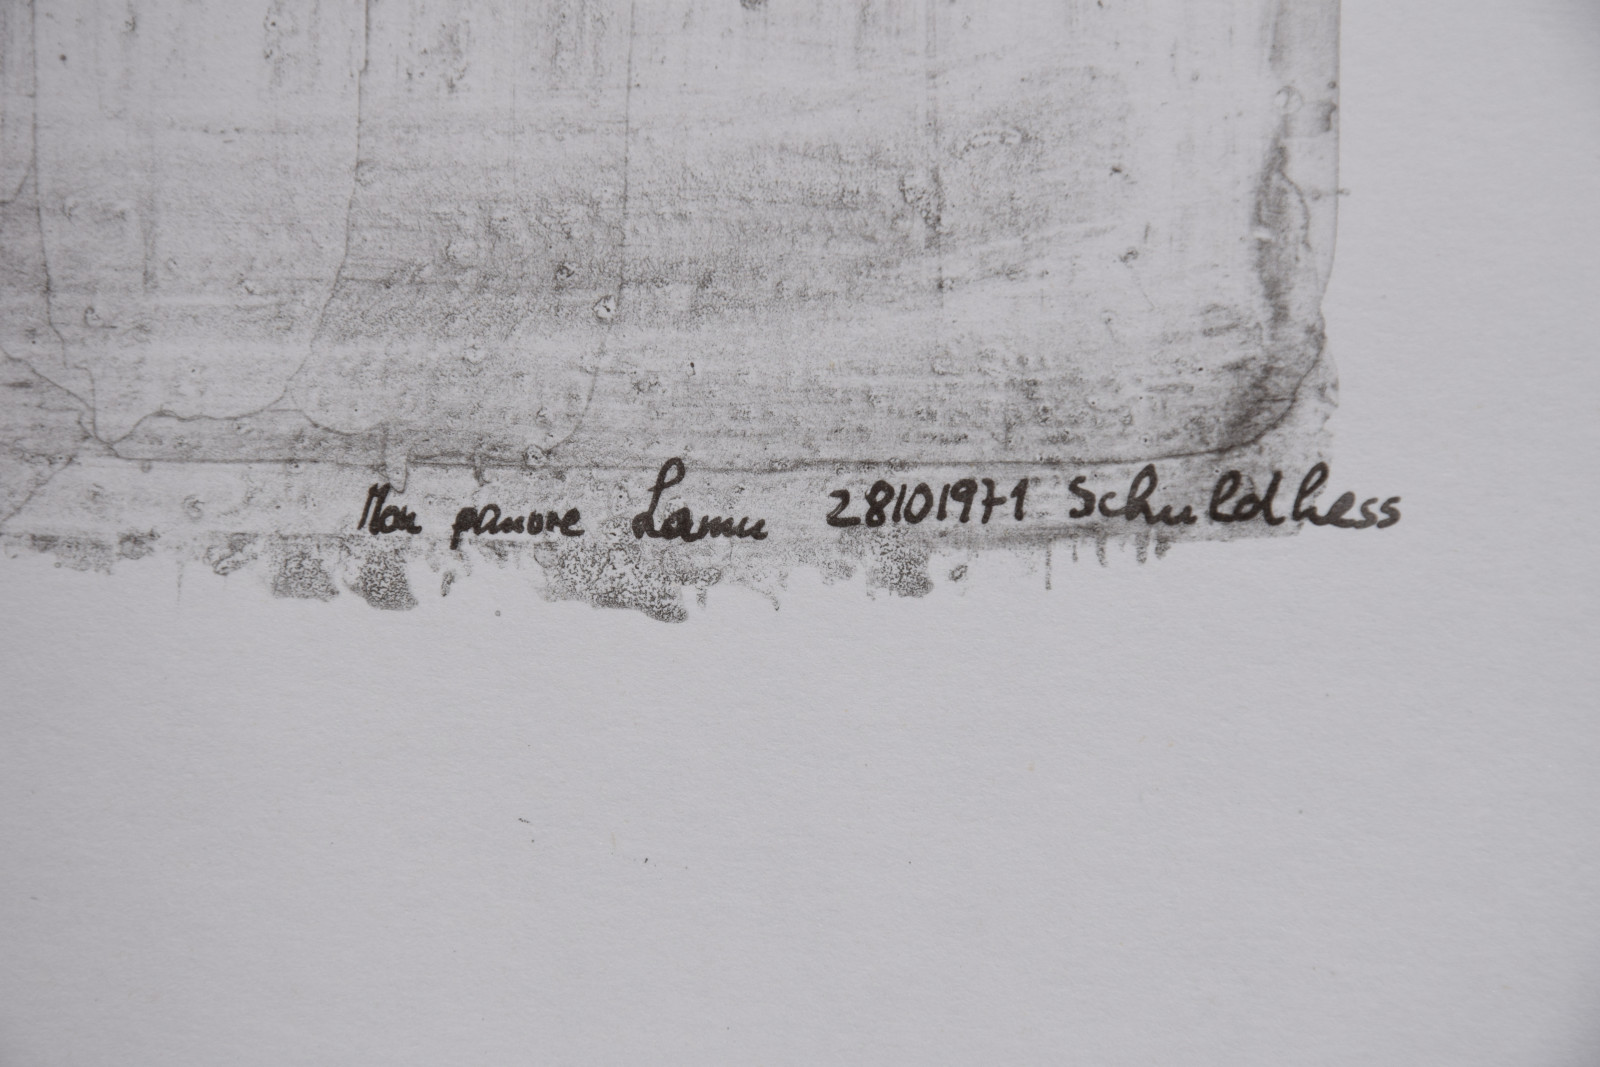 Mon pauvre Lamu 28101971 Schuldhess